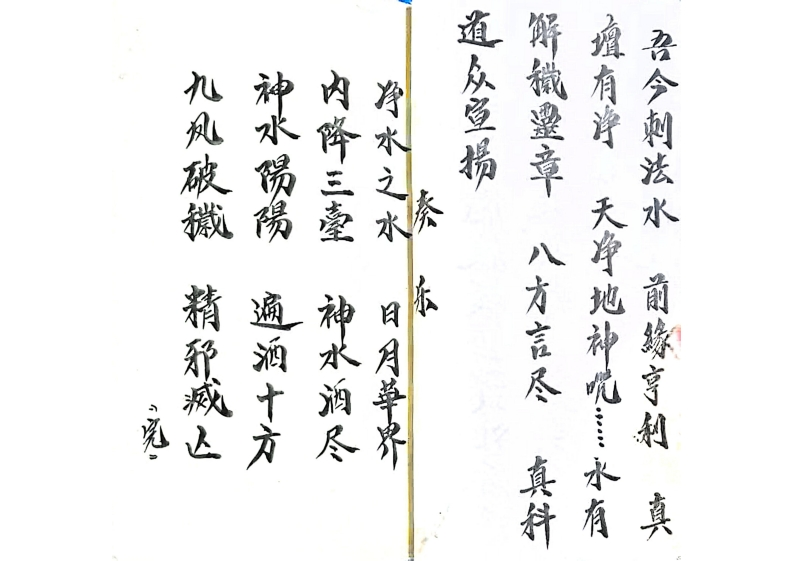 吾今刺法水 前緣亨利 真
壇有净 天净地神呪……永有
解穢靈章 八方言尽 真科
道众宣揚
奏 乐
净水之水 日月華界
内降三臺 神水酒尽
神水陽陽 遍酒十方
九凤破穢 精邪滅亾
"完"